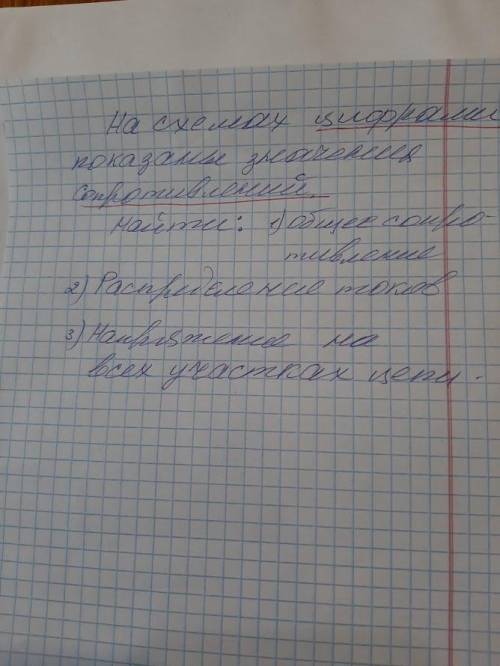 На схемах цифрами
показаны значения
сопротивлений.
Найти: 1) общее сопро-
тивление
2) Распределение токов
3) Напряжение на
всех участках цепи.